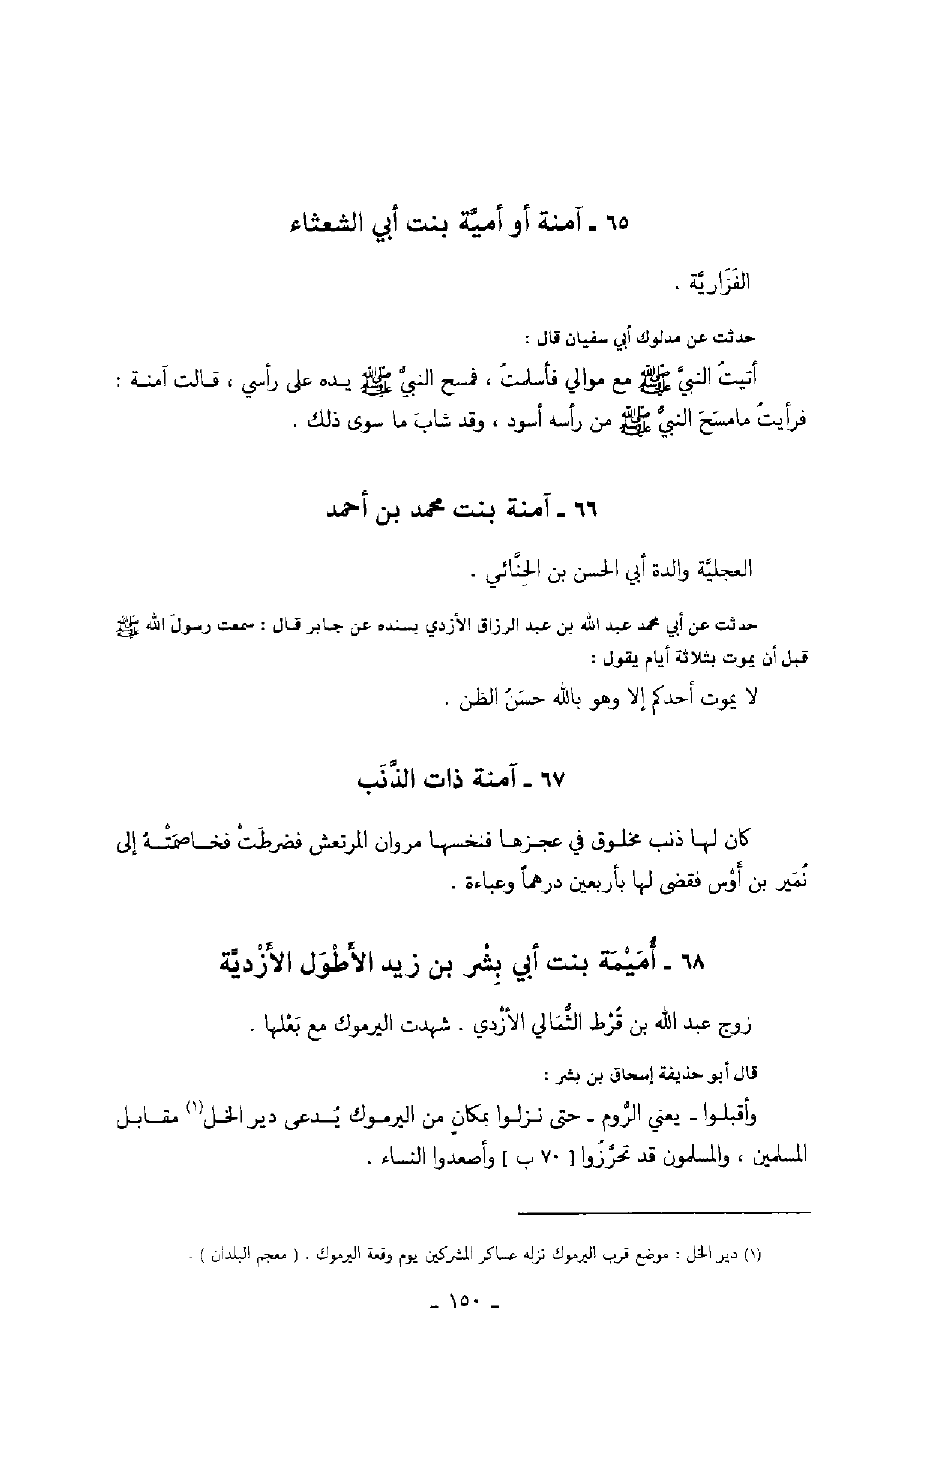 ٦٥ ـ آمنة أو أميَّة بنت أبي الشعثاء
الفَزَاريَّة .
حدثت عن مدلوك أبي سفيان قال :
أتيتُ النبيَّ ﷺ مع موالي فأسلمتُ ، فمسح النبيُّ ﷺ يـده على رأسي ، قـالت آمنـة :
فرأيتُ مامسَحَ النبيُّ ﷺ من رأسه أسود ، وقد شابَ ما سوى ذلك .
٦٦ ـ آمنة بنت محمد بن أحمد
العجليَّة والدة أبي الحسن بن الحِنَّائي .
حدثت عن أبي محمد عبد الله بن عبد الرزاق الأزدي بسنده عن جـابر قـال : سمعت رسولَ الله ﷺ
قبل أن يموت بثلاثة أيام يقول :
لا يموت أحدكم إلا وهو بالله حسَنُ الظن .
٦٧ ـ آمنة ذات الذَّنَب
كان لهـا ذنب مخلـوق في عجـزهـا فنخسهـا مروان المرتعش فضرطَتْ فخـاصمَتْـهُ إلى
نُمَير بن أَوْس فقضى لها بأربعين درهماً وعباءة .
٦٨ ـ أُمَيْمَة بنت أبي بِشْر بن زيد الأَطْوَل الأَزْديَّة
زوج عبد الله بن قُرْط الثُّمَالي الأَزْدي . شهدت اليرموك مع بَعْلها .
قال أبو حذيفة إسحاق بن بشر :
وأقبلـوا ـ يعني الرُّوم ـ حتى نـزلـوا بمكانٍ من اليرمـوك يُـدعى دير الخـل(١) مقـابـل
المسلمين ، والمسلمون قد تحرَّزُوا [ ٧٠ ب ] وأصعدوا النساء .
(١) دير الخل : موضع قرب اليرموك نزله عساكر المشركين يوم وقعة اليرموك . ( معجم البلدان ) .
ـ ١٥٠ ـ